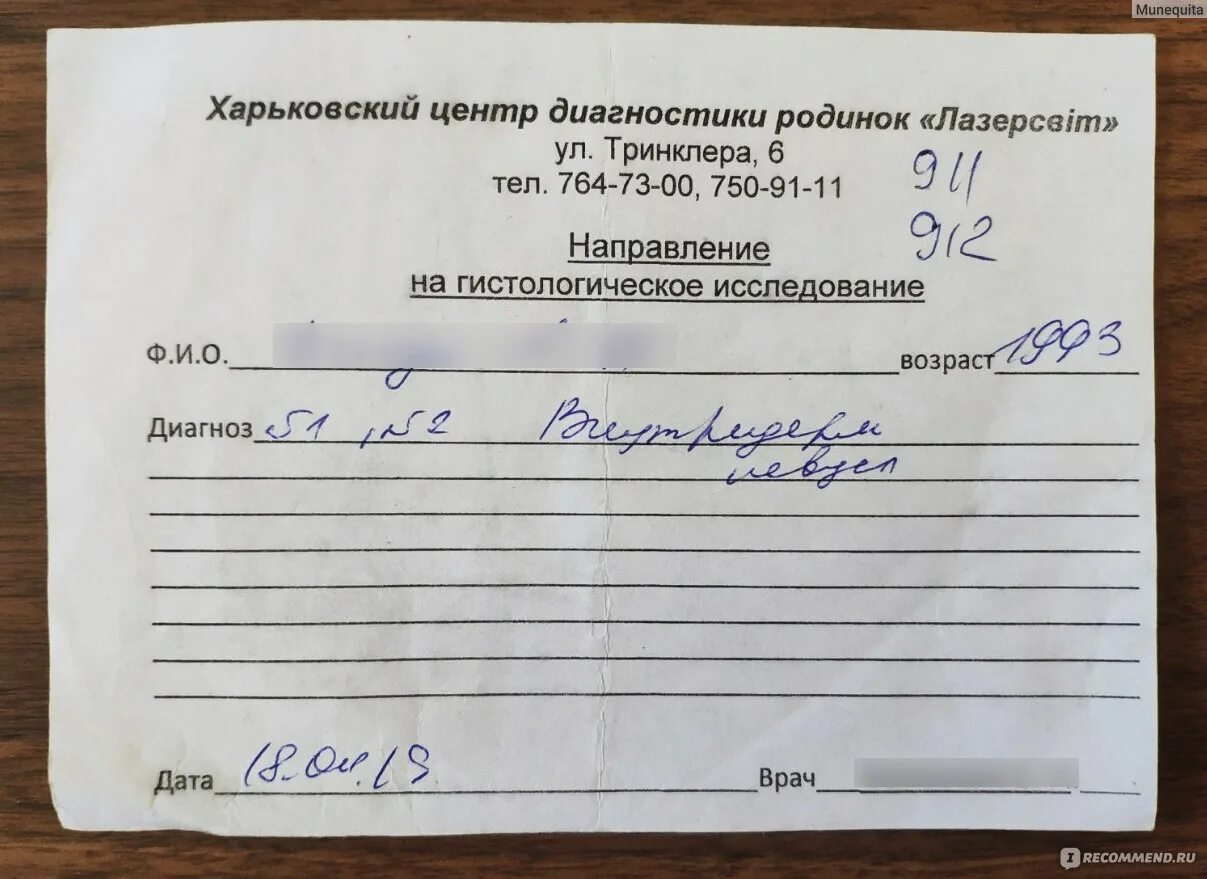 Munequita
Харьковский центр диагностики родинок «Лазерсвіт»
ул. Тринклера, 6
тел. 764-73-00, 750-91-11
911
912
Направление
на гистологическое исследование
Ф.И.О. возраст 1993
Диагноз №1, №2 Внутридерм
невус
Дата 18.04.19 Врач
IRECOMMEND.RU